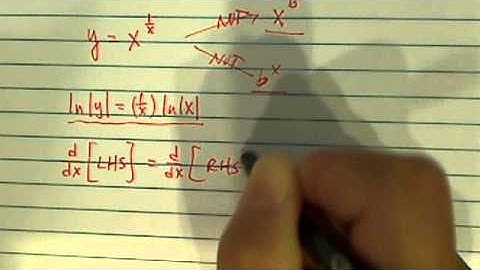 y = x^{1/x} NOT x^b
NOT b^x
ln|y| = (1/x) ln|x|
d/dx [LHS] = d/dx [RHS